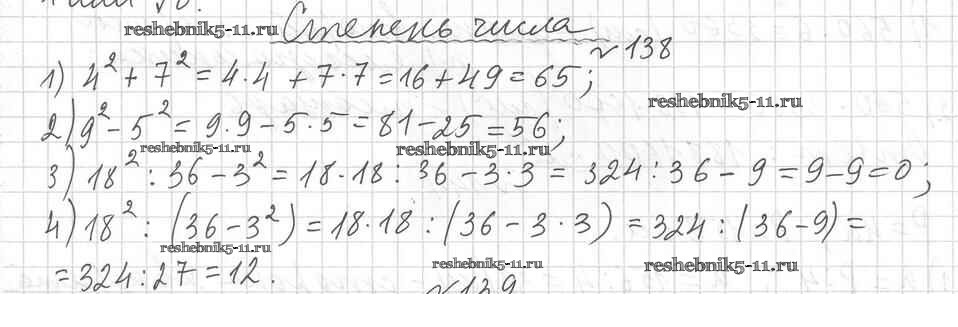 reshebnik5-11.ru Степень числа
№138
1) 4² + 7² = 4·4 + 7·7 = 16 + 49 = 65;
reshebnik5-11.ru
2) 9² - 5² = 9·9 - 5·5 = 81 - 25 = 56;
reshebnik5-11.ru reshebnik5-11.ru
3) 18² : 36 - 3² = 18·18 : 36 - 3·3 = 324 : 36 - 9 = 9 - 9 = 0;
4) 18² : (36 - 3²) = 18·18 : (36 - 3·3) = 324 : (36 - 9) =
reshebnik5-11.ru
= 324 : 27 = 12.
reshebnik5-11.ru reshebnik5-11.ru
№139